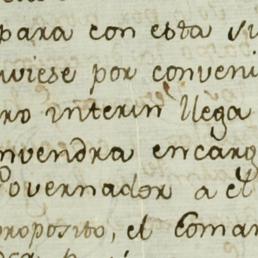 para con esta vi
wiese por conveni
ro interin llega
nvendra encarg
Governador a el
proposito, el Coman